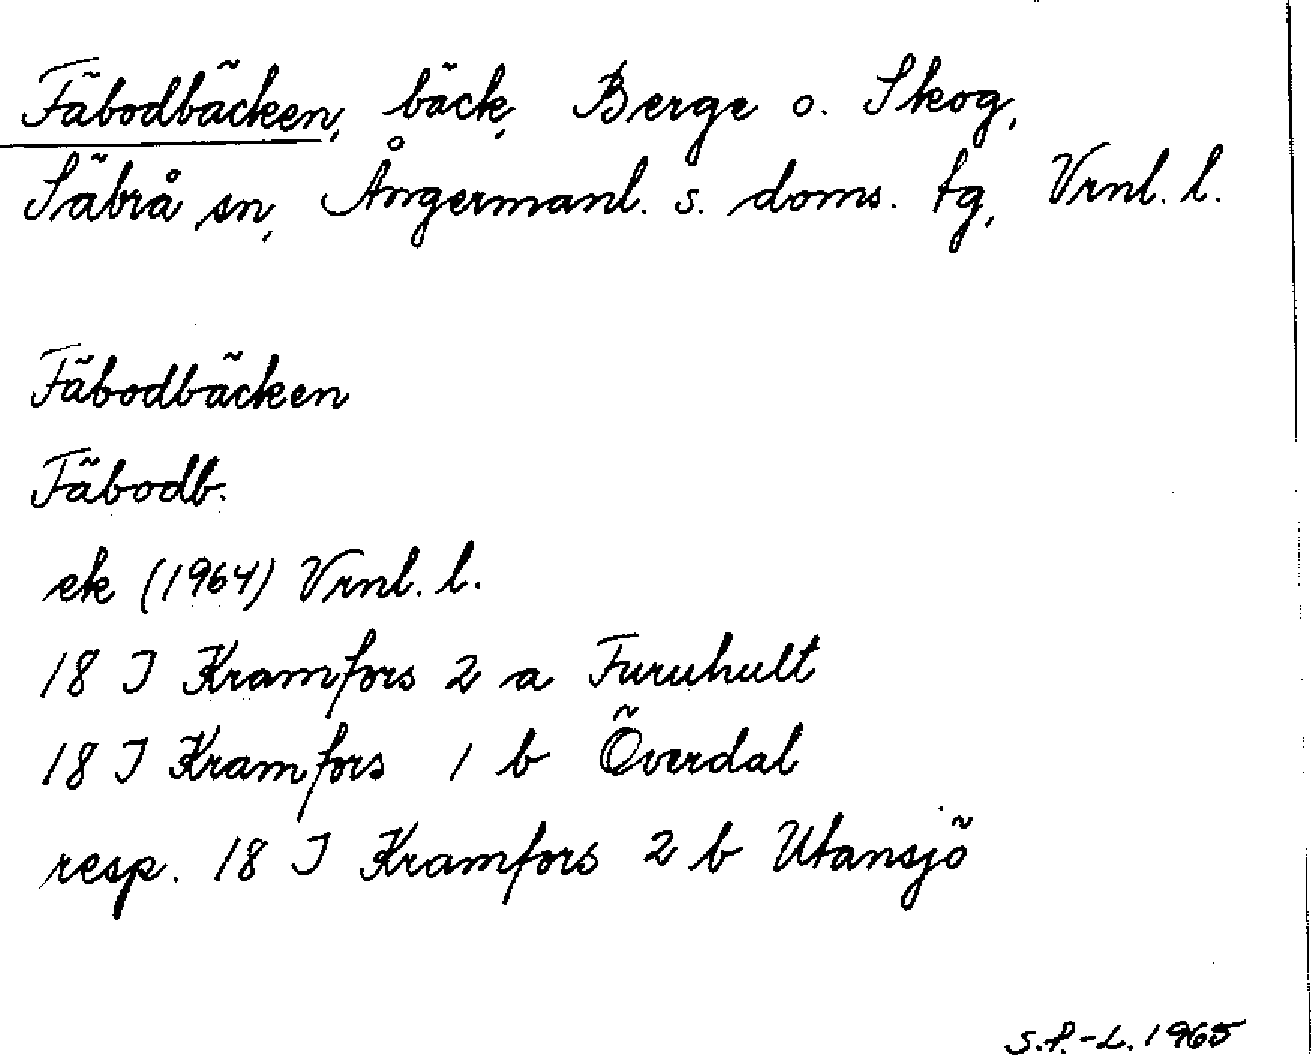 Fäbodbäcken, bäck, Berge o. Skog,
Säbrå sn, Ångermanl. s. doms. tg, Vrnl. l.
Fäbodbäcken
Fäbodb.
ek (1964) Vrnl. l.
18 I Kramfors 2 a Furuhult
18 I Kramfors 1 b Överdal
resp. 18 I Kramfors 2 b Utansjö
S.P.-L. 1965